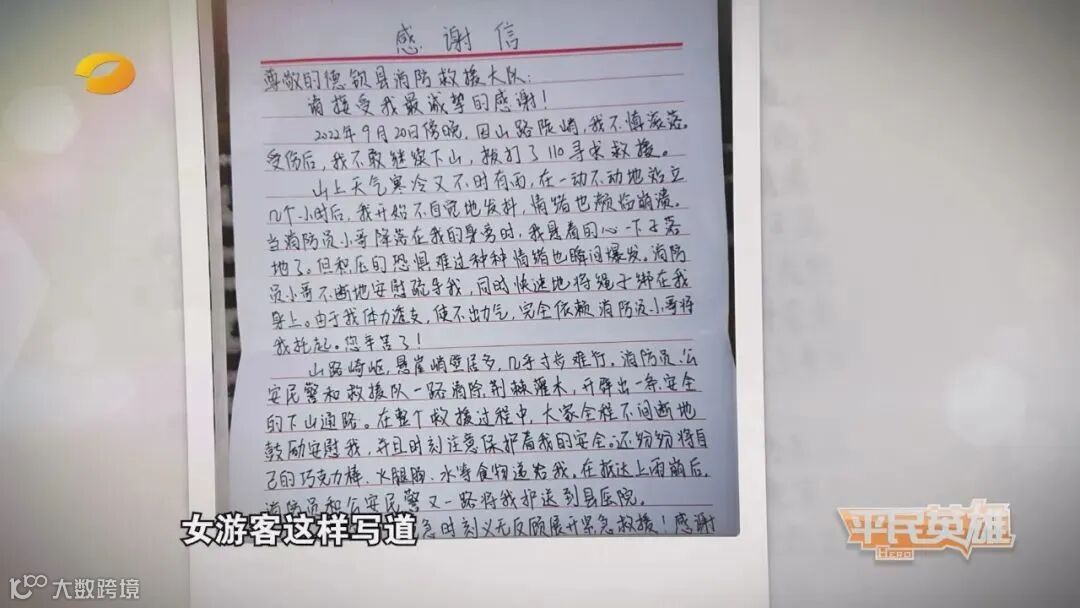 感谢信
尊敬的德钦县消防救援大队：
请接受我最诚挚的感谢！
2022年9月20日傍晚，因山路陡峭，我不慎滚落。
受伤后，我不敢继续下山，拨打了110寻求救援。
山上天气寒冷又不时有雨，在一动不动地站立
几个小时后，我开始不自觉地发抖，情绪也濒临崩溃。
当消防员小哥降落在我的身旁时，我悬着的心一下子落
地了。但积压的恐惧难过种种情绪也瞬间爆发。消防
员小哥不断地安慰疏导我，同时快速地将绳子绑在我
身上。由于我体力透支，使不出力气，完全依赖消防员小哥将
我托起。您辛苦了！
山路崎岖，悬崖峭壁居多，几乎寸步难行。消防员、公
安民警和救援队一路消除荆棘灌木，开辟出一条安全
的下山通路。在整个救援过程中，大家全程不间断地
鼓励安慰我，并且时刻注意保护着我的安全。还纷纷将自
己的巧克力棒、火腿肠、水等食物递给我，在抵达上雨崩后，
消防员和公安民警又一路将我护送到县医院。
急时刻义无反顾展开紧急救援！感谢
女游客这样写道
平民英雄
HERO
大数跨境